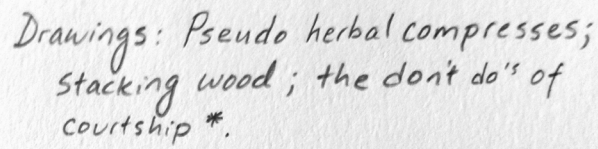 Drawings: Pseudo herbal compresses;
stacking wood; the don't do's of
courtship *.